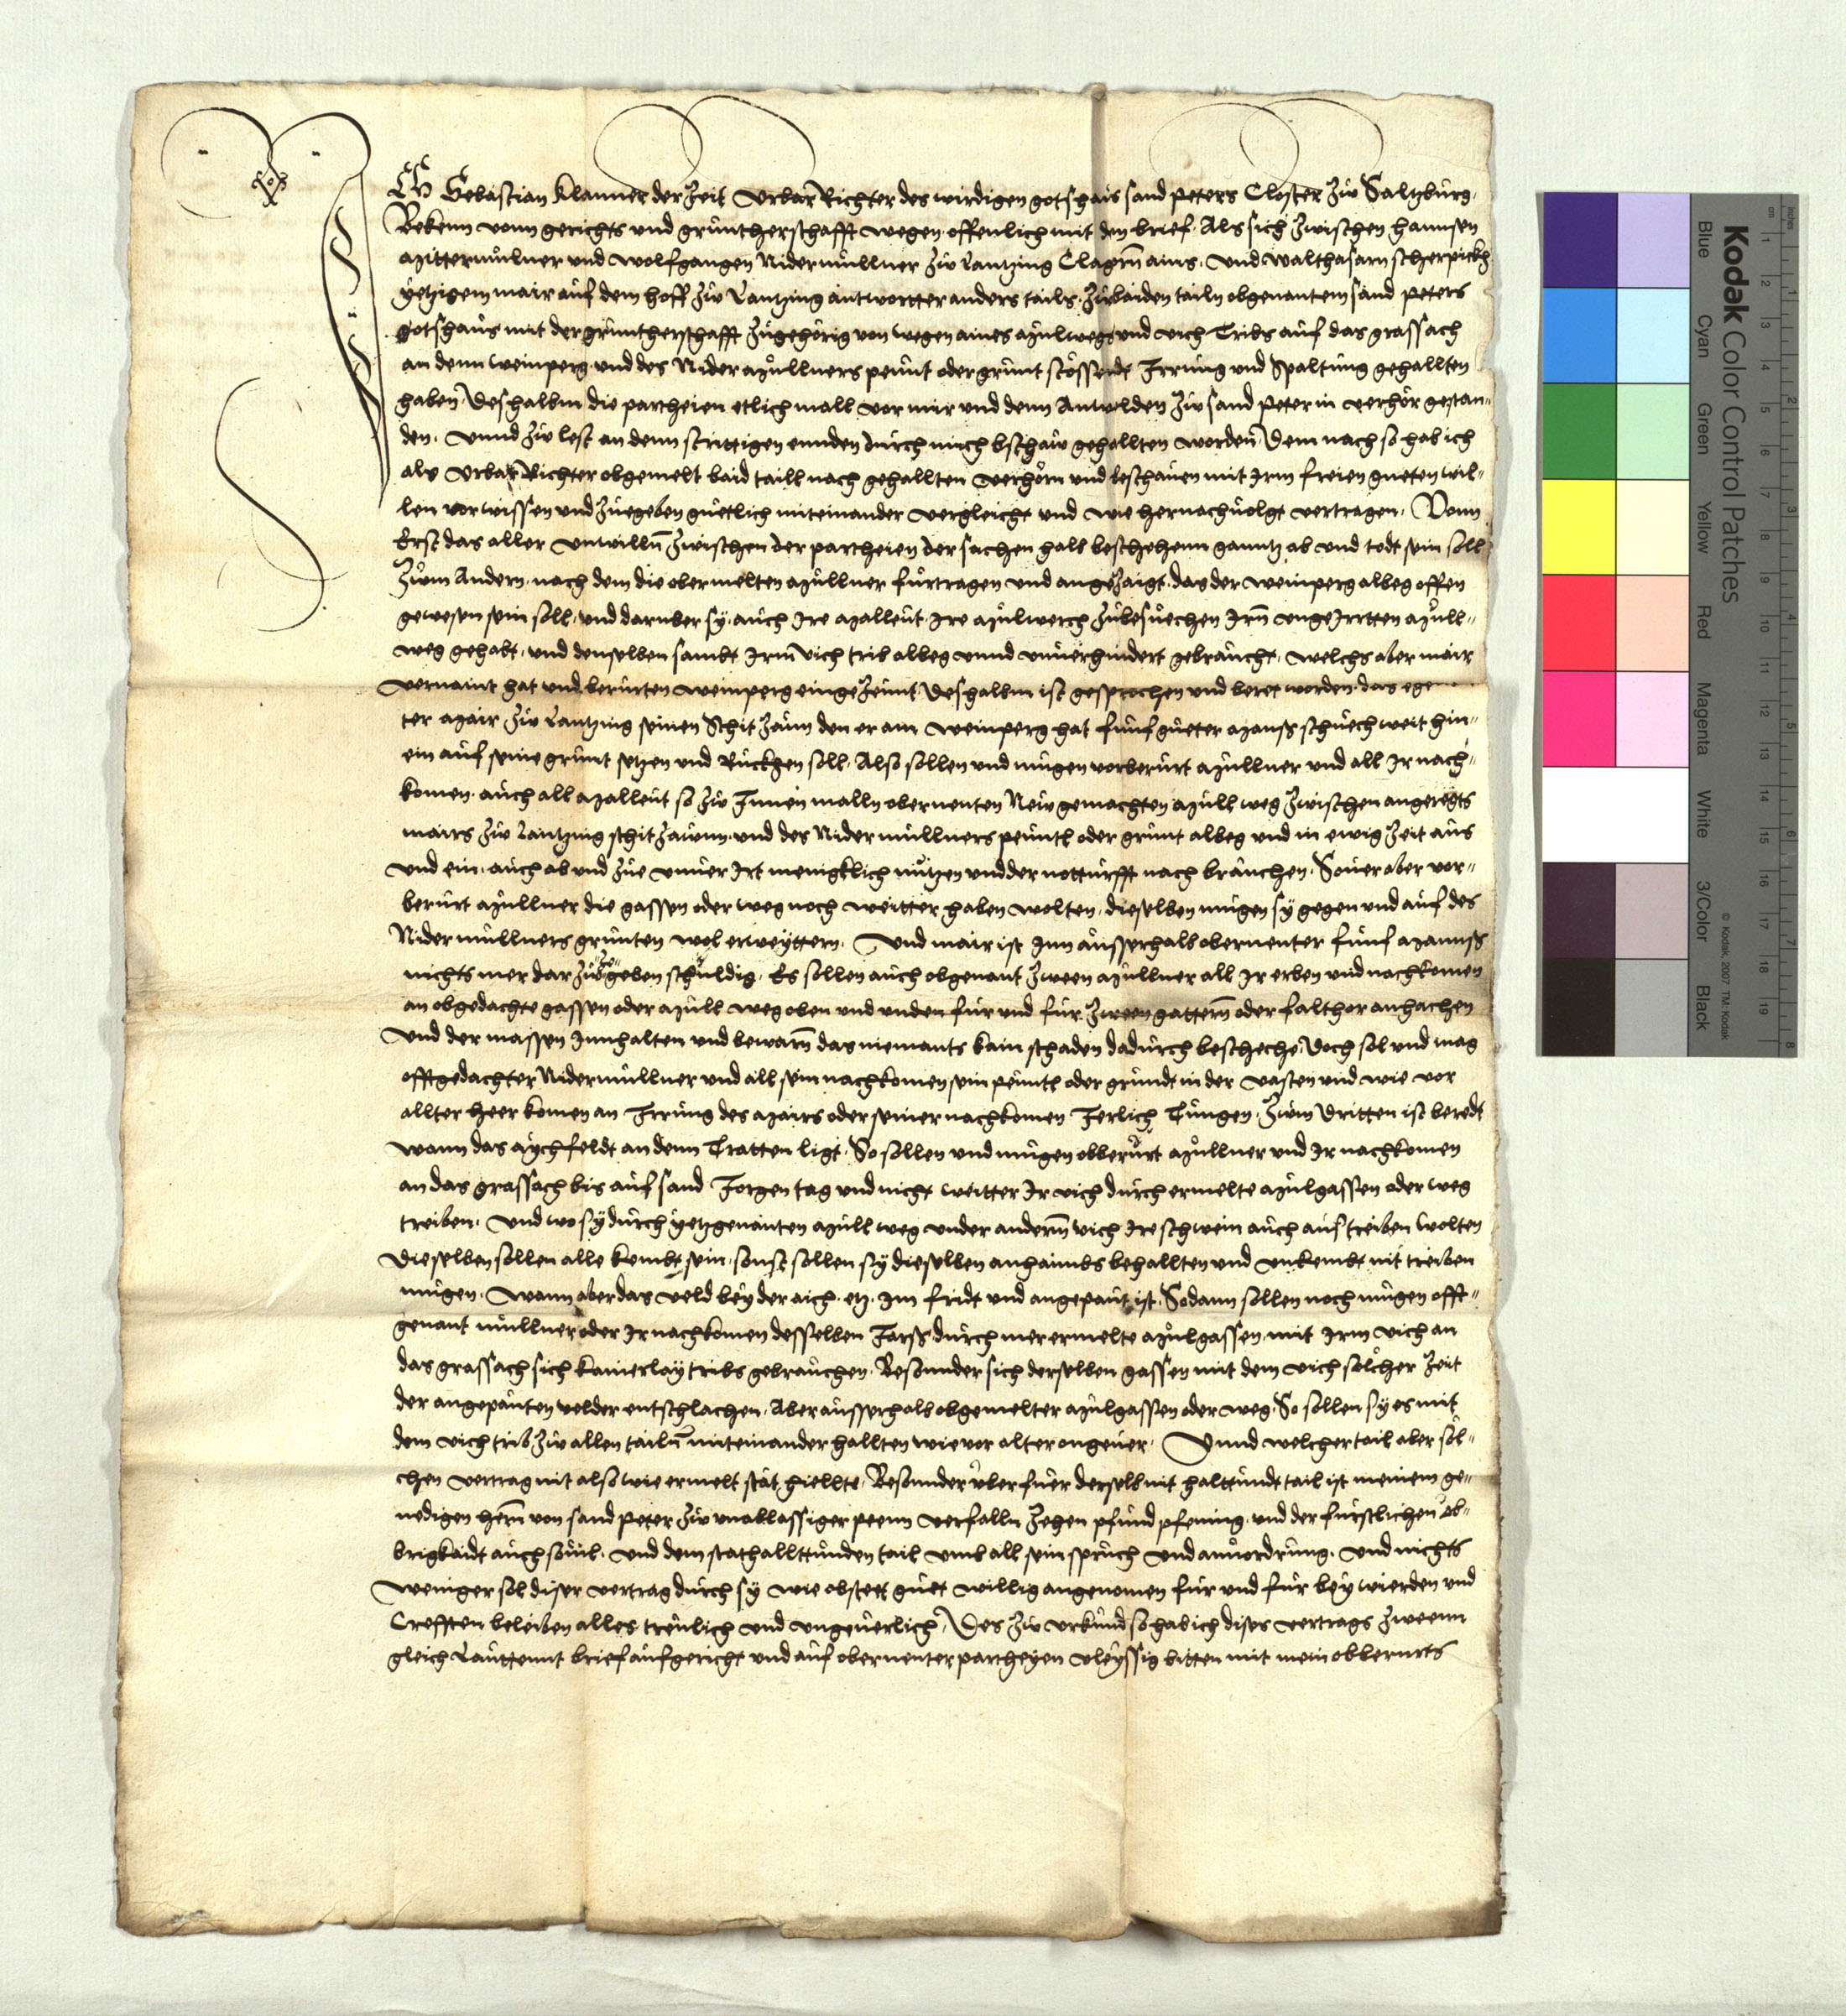 ICH Sebastian Klanner der Zeit Urbar Richter des wirdigen gotshais sand Peters Closter Zw Saltzburg.
Bekenn vonn gerichts und gruntherschafft wegen offenlich mit dem brief. Als sich Zwischen hannsen
Mittermulner und Wolfgangen Nidermullner Zw Lantzing Clagern ains. und Walthasarn scherpickh
yetzigem mair auf dem hoff Zw Lantzing antwortter anders tails. Zu baiden tailn obgenantem sand Peters
gotshaus mit der gruntherschafft Zugehörig von wegen aines Mulwegs und vich Tribs auf das grassach
an denn weinperg und des Nider Müllners peunt oder grunt stössende Irrung und Spaltung gehallten
haben Deshalben die partheien etlich mall vor mir und denn Anwelden Zw sand Peter in verhör gestan-
den. Unnd Zw lest an denn strittigen ennden durch mich bschaw gehallten worden Dem nach so hab ich
als Urbar Richter obgemelt baid taill nach gehallten verhörn und beschauen mit Irm freien gueten wil-
len vorwissen und Zuegeben guetlich miteinander vergleicht und wie hernachuolgt vertragen. Vonn
Erst das aller unwilln Zwischen der partheien der sachen halb beschehenn ganntz ab und todt sein soll
Zwm Andern. nach dem die obermelten Müllner fürtragen und angeZaigt. das der weinperg albeg offen
gewesen sein soll. und darüber sy. auch Ire Malleut. Ire Mulwerch Zubesuechen Irn ungeIrrten Mull-
weg gehabt. und denselben sambt Irm vich trib albeg unnd unuerhindert gebraucht. welchs aber mair
vernaint hat und berurten weinperg eingeZeunt Deshalben ist gesprochen und beret worden. das
ter Mair Zw Lantzing seinen Schit Zaun den er am weinperg hat funf gueter Manss schuech weit hin-
ein auf seine grunt setzen und Ruckhen soll. Also sollen und mugen vorberurt Mullner und all Ir nach-
komen. auch all Malleut so Zw Innen malln obernenten New gemachten Mull weg Zwischen angeregts
mairs Zw Lantzing schit Zawnn. und des Nidermullners peuntt oder grunt albeg und in ewig Zeit aus
und ein. auch ab und Zue unuer Irt menigklich nützen und der notturfft nach brauchen. Souer aber vor-
berurt Mullner die gassen oder weg noch weitter haben wolten. dieselben mugen sy gegen und auf des
Nidermullners grunten wol erweyttern. Und mair ist Inn ausserhalb obernenter funf Mannss
nichts mer dar Zu Zegeben schuldig. Es sollen auch obgenant Zween Mullner all Ir erben und nachkomen
an obgedachte gassen oder Mull weg oben und unden fur und fur Zween gattern oder falthor anhachen
Und der massen Innhalten und bewarn das niemants kain schaden dadurch bescheche Doch sol und mag
offtgedachter Nidermullner und all sein nachkomen sein peuntt oder grundt in der vasten und wie vor
allter heer komen an Irrung des Mairs oder seiner nachkomen Ierlich Tungen. Zwm Dritten ist beredt
wann das Aychfeldt an denn Tratten ligt. So sollen und mugen obberurt Müllner und Ir nachkomen
an das grassach bis auf sand Iorgen tag und nicht weitter Ir vich durch ermelte Mulgassen oder weg
treiben. Und wo sy durch yetzgenanten Mull weg under anderm vich Ire schwein auch auf treiben wolten
Dieselben sollen alle kembt sein. sonst sollen sy dieselben anhaimbs behallten und unkembt nit treiben
mugen. Wann aber das veld bey der aich. etz. Im fridt und angepaut ist. Sodann sollen noch mugen offt-
genant mullner oder Ir nachkomen desselben Iarss durch mer ermelte Mulgassen. mit Irm vich an
das grassach sich kainerlay tribs gebrauchen. Besonnder sich derselben gassen mit dem vich solcher Zeit
der angepauten velder entschlachen. Aber ausserhalb obgemelter Mulgassen oder weg. So sollen sy es mit
dem vich trib Zw allen tailn miteinander hallten wie vor alter ongeuer. Unnd welcher tail aber sol-
chen vertrag nit also wie ermelt stät hiellte. Besonnder überfuer derselb nit haltundt tail ist meinem ge-
nedigen hern von sand Peter Zw unablassiger peenn verfalln Zehen pfund pfening. und der furstlichen ob-
brigkaidt auch souil. und dem stathallttunden tail umb all sein spruch und anuordrung. und nichts
weniger sol diser vertrag durch sy wie obstett guet willig angenomen fur und fur bey wierden und
Crefften beleiben alles treulich und ungeuerlich Des Zw urkund so hab ich dises vertrags Zweenn
gleich Lauttennt brief aufgericht und auf obernenter partheyen vleyssig bitten mit mein obberurts
Kodak Color Control Patches
Blue Cyan Green Yellow Red Magenta White 3/Color Black
© Kodak, 2007 TM: Kodak
inches 1 2 3 4 5 6 7 8
cm 1 2 3 4 5 6 7 8 9 10 11 12 13 14 15 16 17 18 19